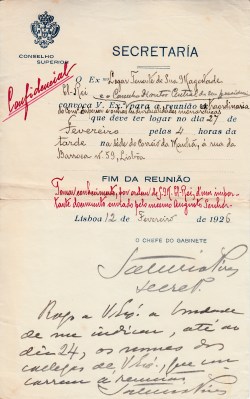 CONSELHO
SUPERIOR
SECRETARÍA
Confidencial
O Ex.mo Lugar Tenente de Sua Magestade
El-Rei e o Conselho
convoca V. Ex.ª para a reunião extraordinaria
que deve ter logar no dia 27
de Fevereiro pelas 4 horas da
tarde na séde do Correio da Manhã, á rua da
Barroca nº 59, Lisbôa
FIM DA REUNIÃO
Tomar conhecimento, por ordem de S. M. El-Rei, d'um impor-
tante documento enviado pelo mesmo Augusto Senhor.
Lisboa 12 de Fevereiro de 1926
O CHEFE DO GABINETE
Secret.
Rogo a V. Ex.ª a bondade
de me indicar, até ao
dia 24, os nomes dos
collegas de V. Ex.ª, que con
correm a reunião